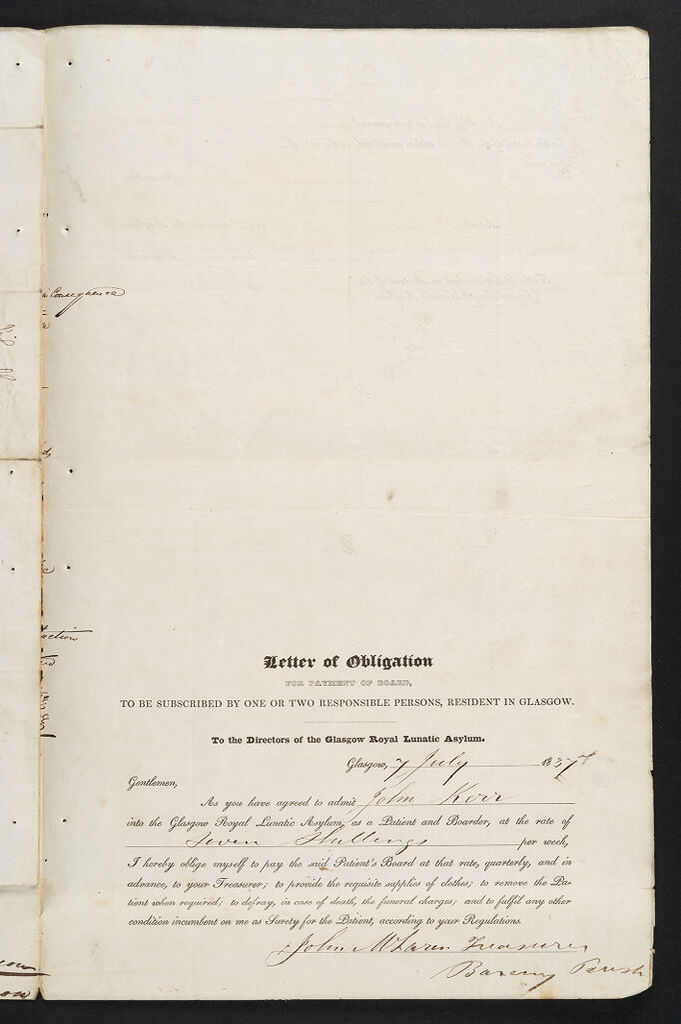 Consequence
action
Letter of Obligation
FOR PAYMENT OF BOARD,
TO BE SUBSCRIBED BY ONE OR TWO RESPONSIBLE PERSONS, RESIDENT IN GLASGOW.
To the Directors of the Glasgow Royal Lunatic Asylum.
Glasgow, 7 July 1837
Gentlemen,
As you have agreed to admit John Kerr
into the Glasgow Royal Lunatic Asylum, as a Patient and Boarder, at the rate of
Seven Shillings per week,
I hereby oblige myself to pay the said Patient's Board at that rate, quarterly, and in
advance, to your Treasurer; to provide the requisite supplies of clothes; to remove the Pa-
tient when required; to defray, in case of death, the funeral charges; and to fulfil any other
condition incumbent on me as Surety for the Patient, according to your Regulations.
John McLaren Treasurer
Barony Parish